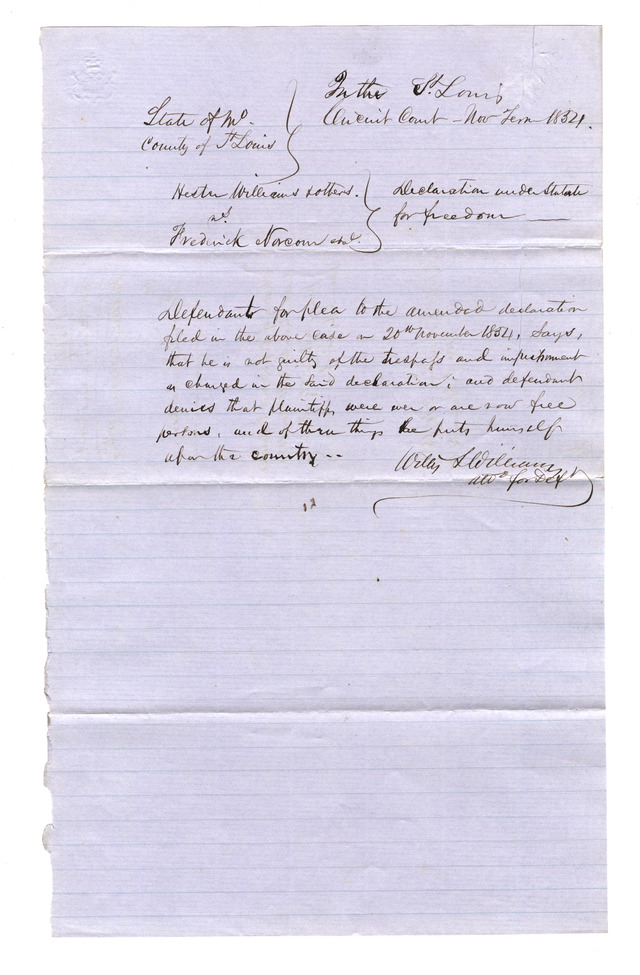 In the St. Louis
State of Mo.
County of St Louis
Circuit Court - Nov Term 1854.
Hester Williams & others.
vs.
Frederick Norcom et al.
Declaration under Statute
for freedom
Defendant for plea to the amended declaration
filed in the above case on 20th November 1854, Says,
that he is not guilty of the trespass and imprisonment
as charged in the said declaration; and defendant
denies that plaintiffs were ever or are now free
persons, and of these things he puts himself
upon the country --
Willis L Williams
atty for Deft